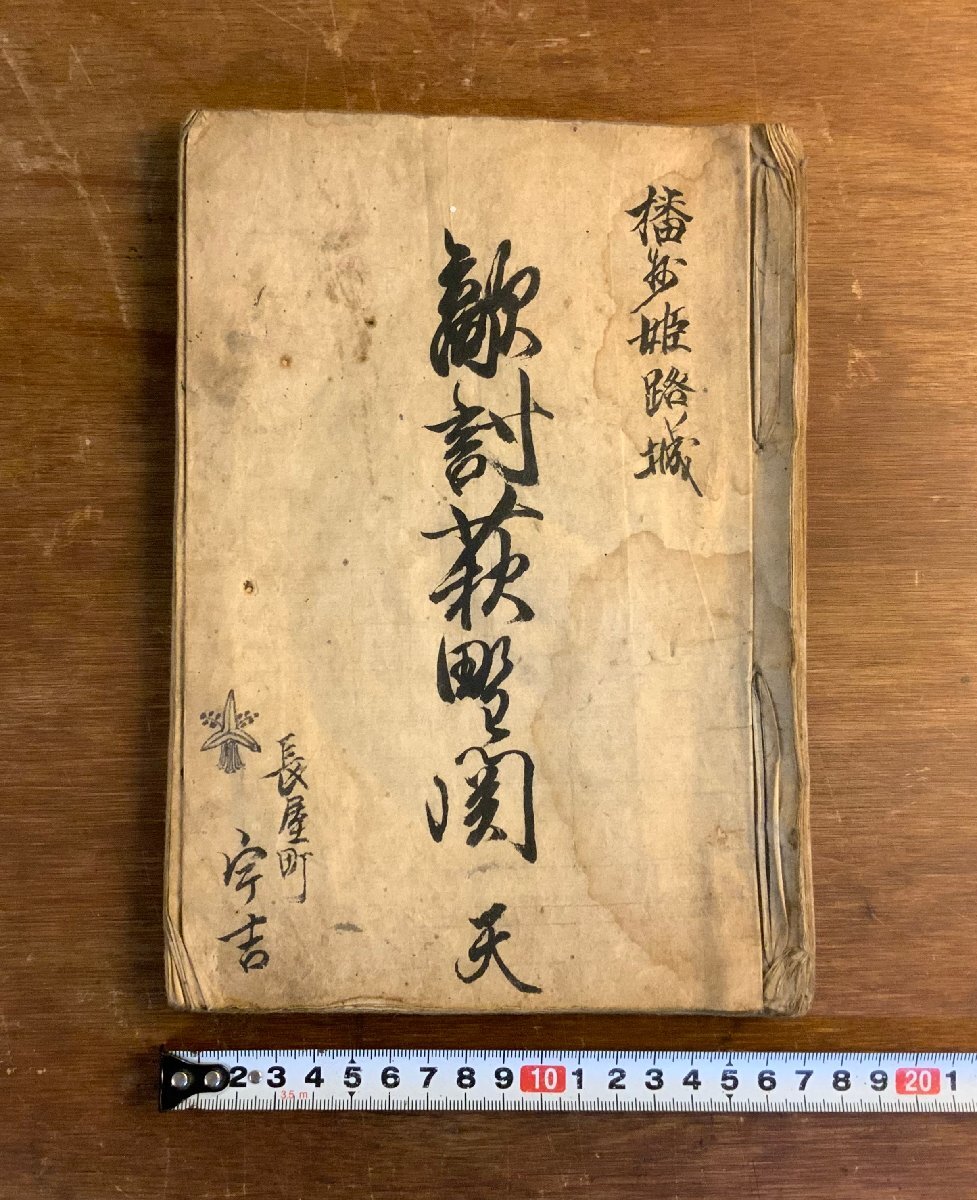 播州姫路城
敵討萩野関 天
長屋町
宇吉
2 3 4 5 6 7 8 9 10 1 2 3 4 5 6 7 8 9 20 1
3.5 m